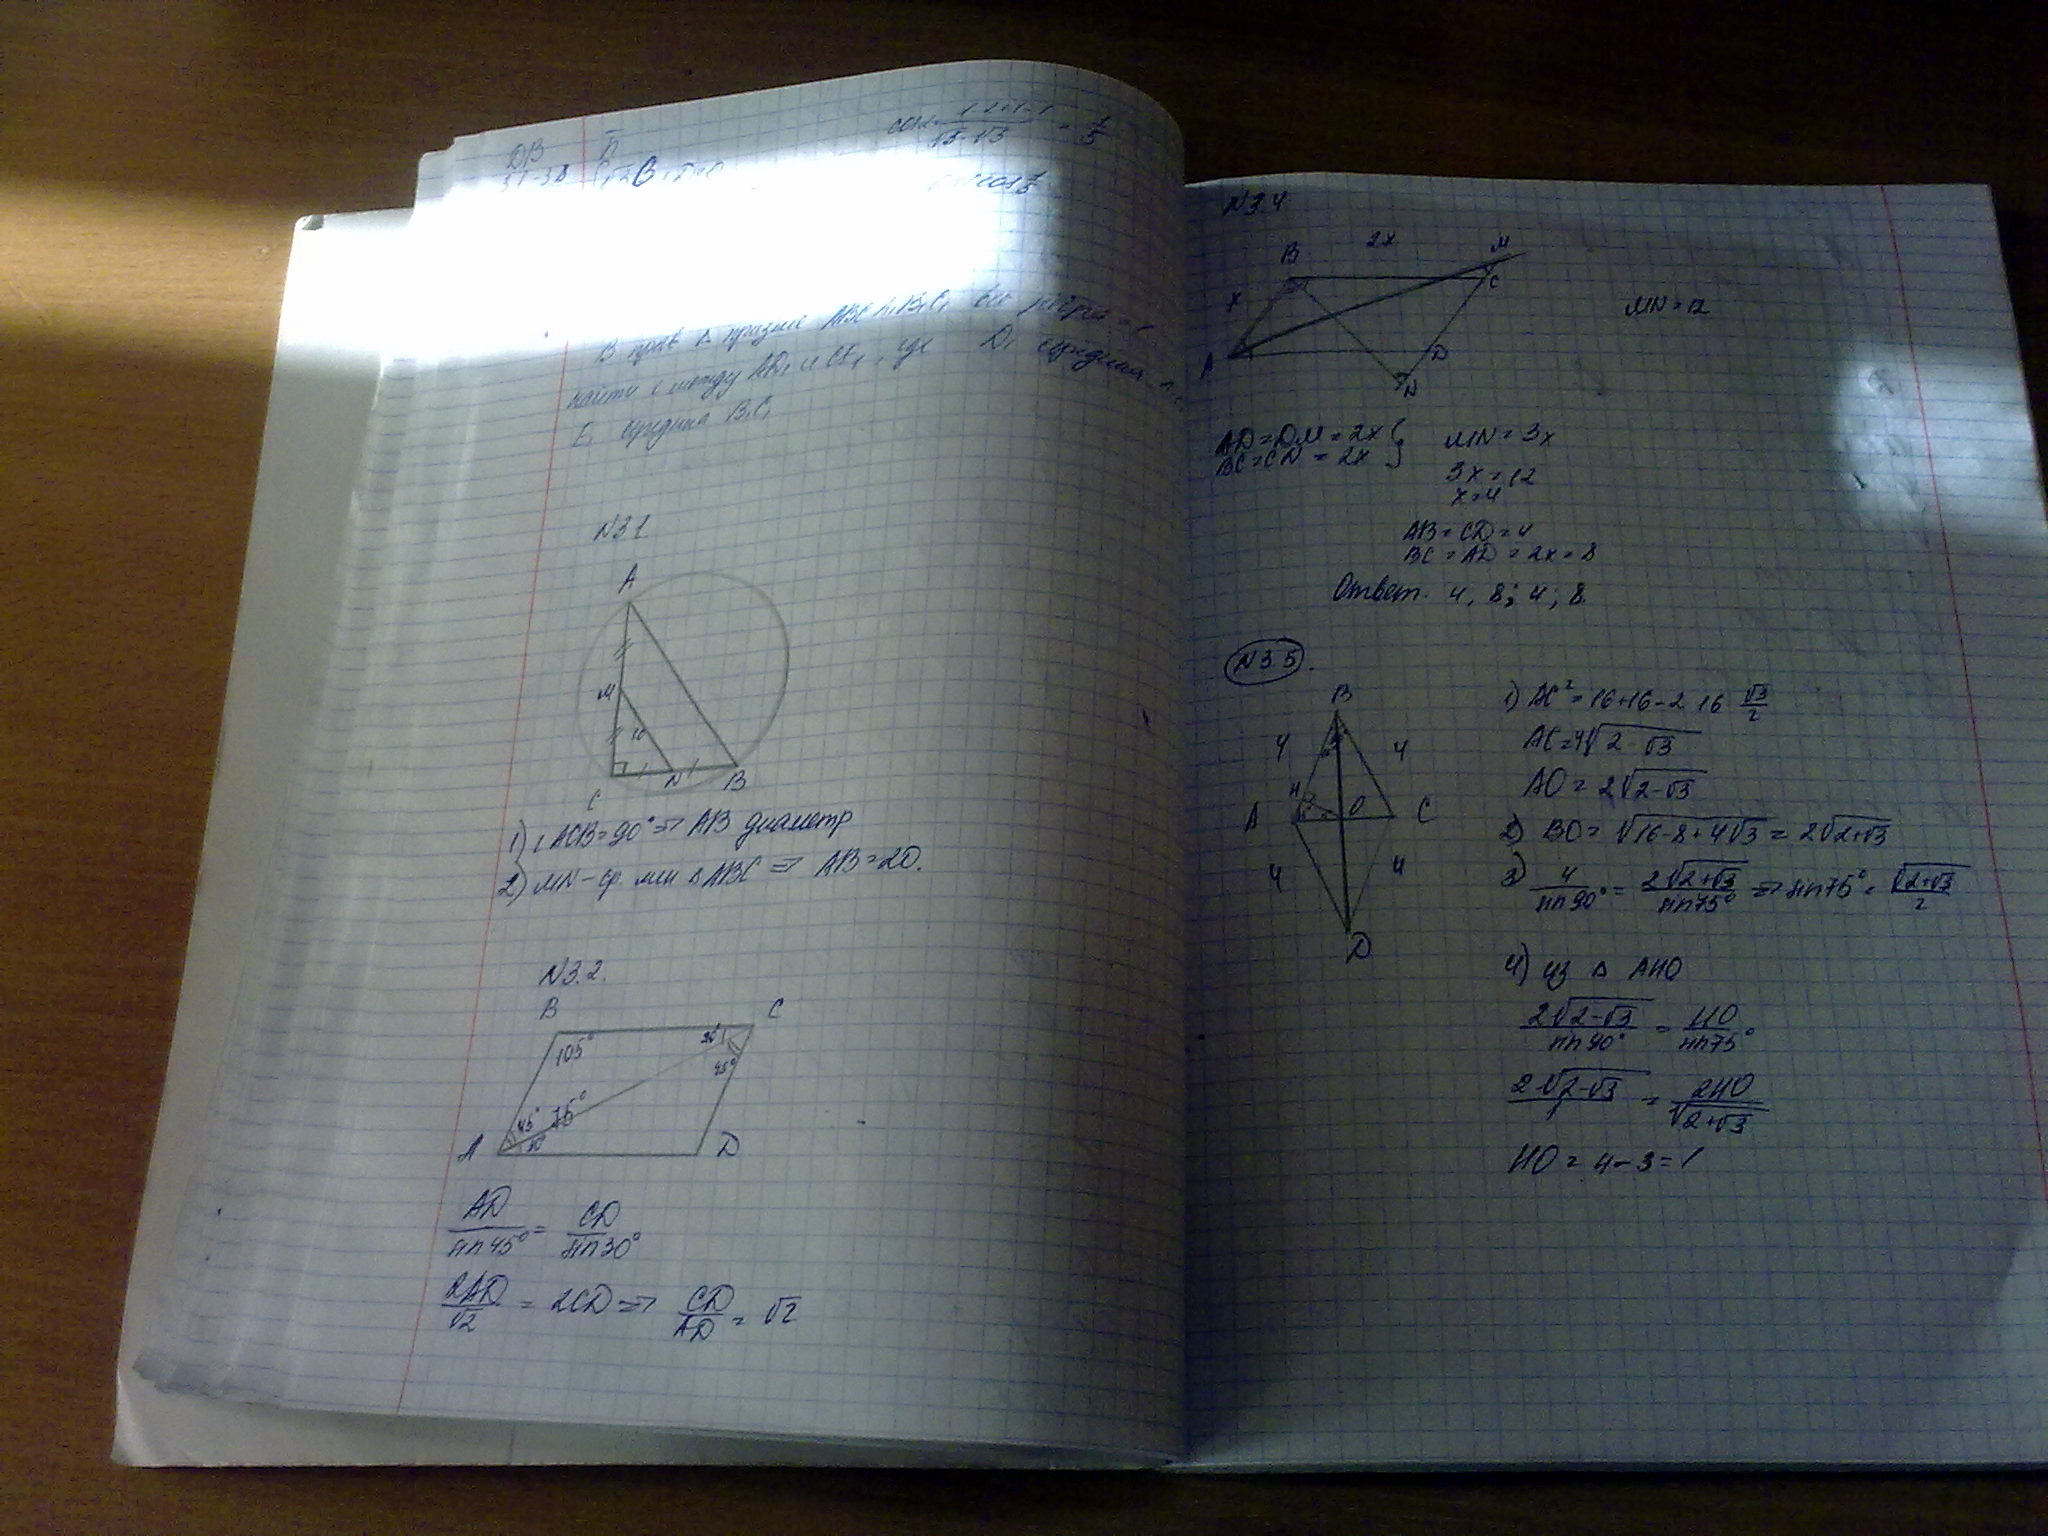 ДВ
31-38
cosα = = 1/5
В прав Δ призме ABCA₁B₁C₁ все рёбра = 1
найти ∠ между AD₁ и CE₁, где D₁ середина
E₁ середина B₁C₁
N31
A
M
10
N
B
C
1) ∠ACB=90° => AB диаметр
2) MN - ср. лин Δ ABC => AB=20.
N3.2.
B C
105° 30° 45°
45° 75° 30°
A D
AD/sin45° = CD/sin30°
2AD/√2 = 2CD => CD/AD = √2
N3.4
2x M
B C
x
MN=12
A D
N
AD=DM=2x }
BC=CN=2x } MN=3x
3x=12
x=4
AB=CD=4
BC=AD=2x=8
Ответ. 4, 8; 4; 8
N3.5.
B
4 4
H
A O C
4 4
D
1) AC²=16+16-2 16 √3/2
AC=4√(2-√3)
AO=2√(2-√3)
2) BO=√(16-8+4√3)=2√(2+√3)
3) 4/sin90° = 2√(2+√3)/sin75° => sin75° = √(2+√3)/2
4) из Δ AHO
2√(2-√3)/sin90° = HO/sin75°
2√(2-√3)/1 = 2HO/√(2+√3)
HO = 4-3=1